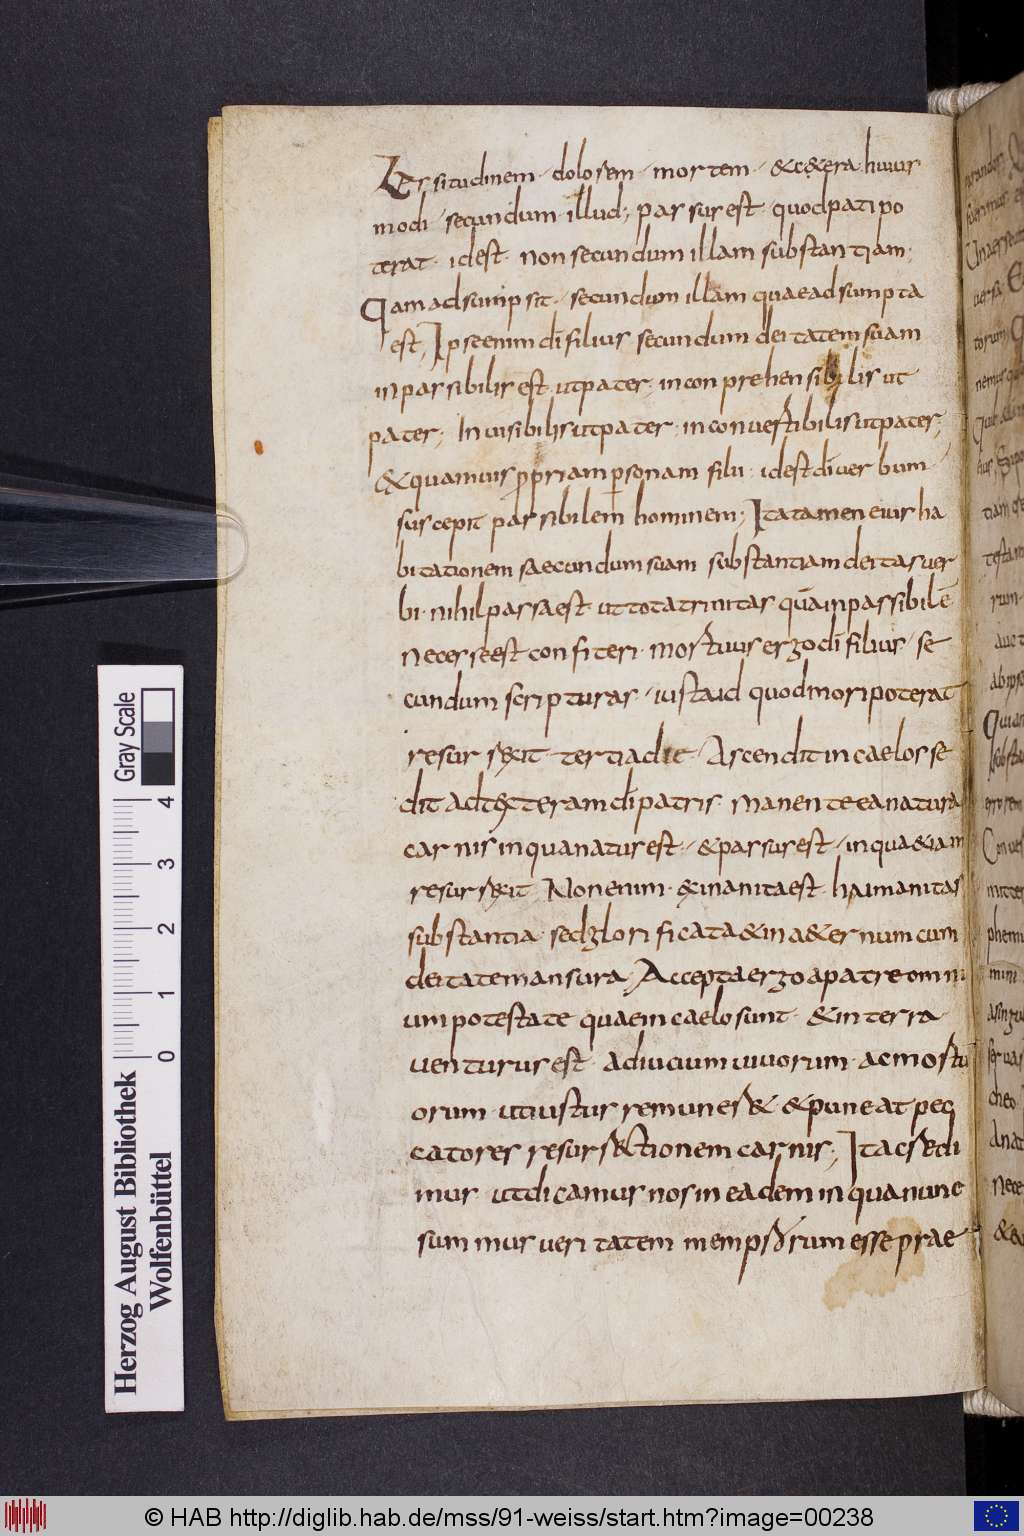 Lassitudinem · dolorem · mortem · &c&era huius
modi · secundum · illud; passus est · quod pati po
terat · id est · non secundum illam substantiam ·
Qam adsumpsit · secundum illam quae adsumpta
est; Ipse enim di filius secundum deitatem suam
inpassibilis est · ut pater; inconprehensibilis ut
pater; Inuisibilis ut pater; inconuertibilis ut pater;
& quamuis ppriam psonam filii · id est di uerbum
suscepit passibilem hominem; Ita tamen eius ha
bitationem saecundum suam substantiam deitas uer
bi · nihil passa est · ut tota trinitas quā inpassibilē
necesse est confiteri · mortuus ergo di filius · se
cundum scripturas · iusta id quod mori poterat
resurrexit tertia die · Ascendit in caelos se
dit ad dexteram di patris · manente ea natura
carnis in qua natus est · & passus est · in qua &iam
resurrexit Non enim · exinanita est humanitas
substantia · sed glorificata & in a&ernum cum
deitate mansura · Accepta ergo a patre omni
um potestate quae in caelo sunt · & in terra
uenturus est · ad iuicium uiuorum · ac mortu
orum · ut iustus remuner& & puneat pec
catores resurrectionem carnis; Ita credi
mus ut dicamus nos in eadem in qua nunc
summus ueritatem memprorum esse prae
Gray Scale
0 1 2 3 4
Herzog August Bibliothek
Wolfenbüttel
© HAB http://diglib.hab.de/mss/91-weiss/start.htm?image=00238